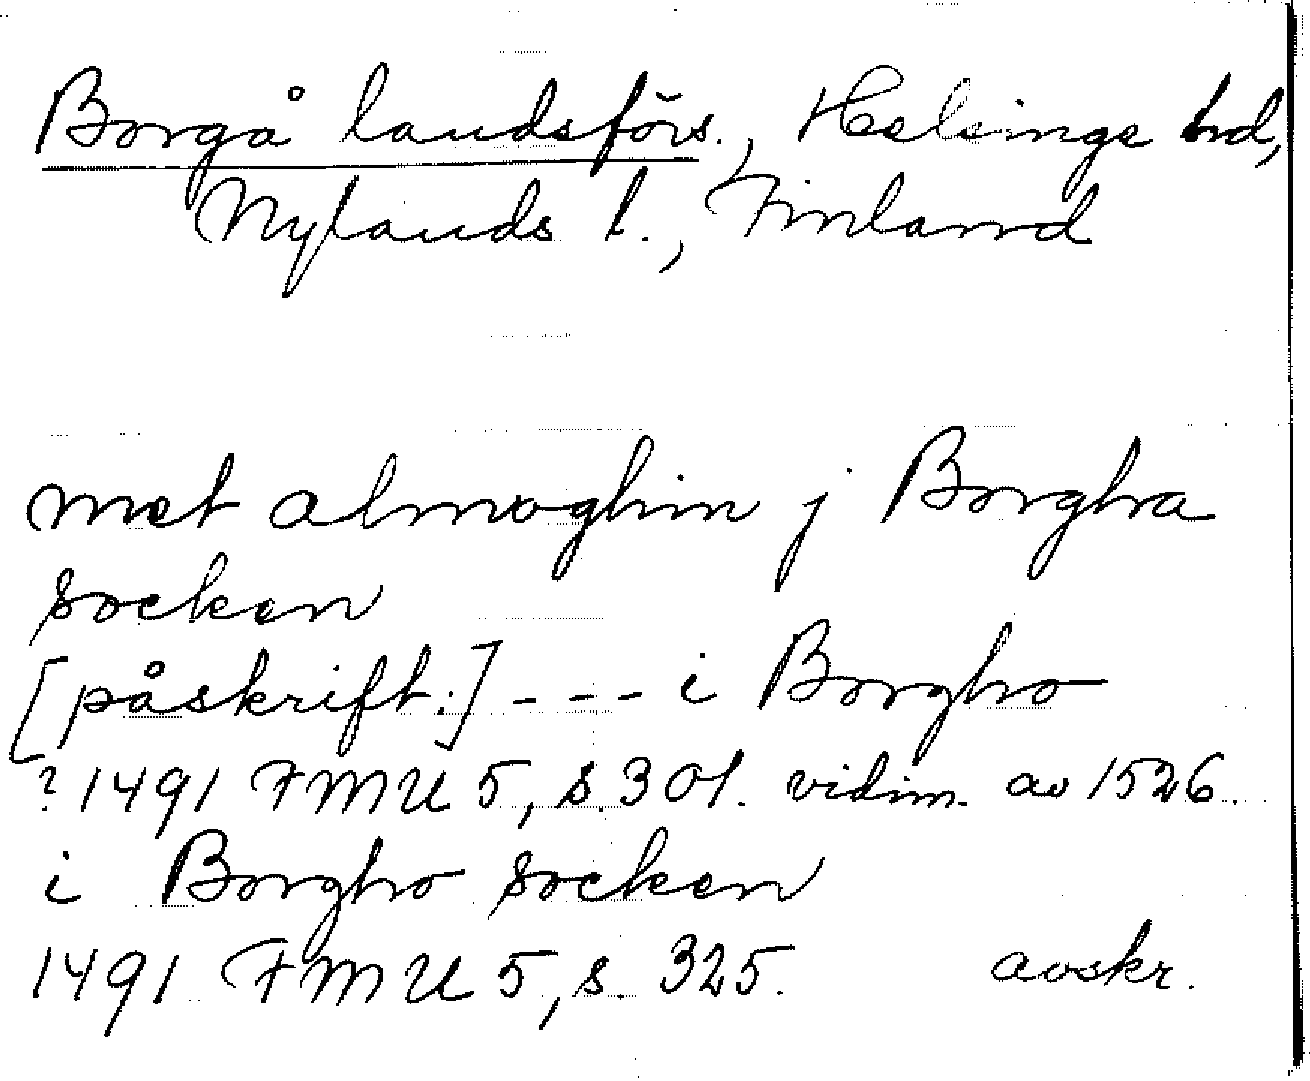 Borgå landsförs., Helsinge hd,
Nylands l., Finland
met almoghin j Borgha
socken
[påskrift:] - - - i Borgho
? 1491 FMU 5, s. 301. vidim. av 1526.
i Borgho socken
1491 FMU 5, s. 325. avskr.